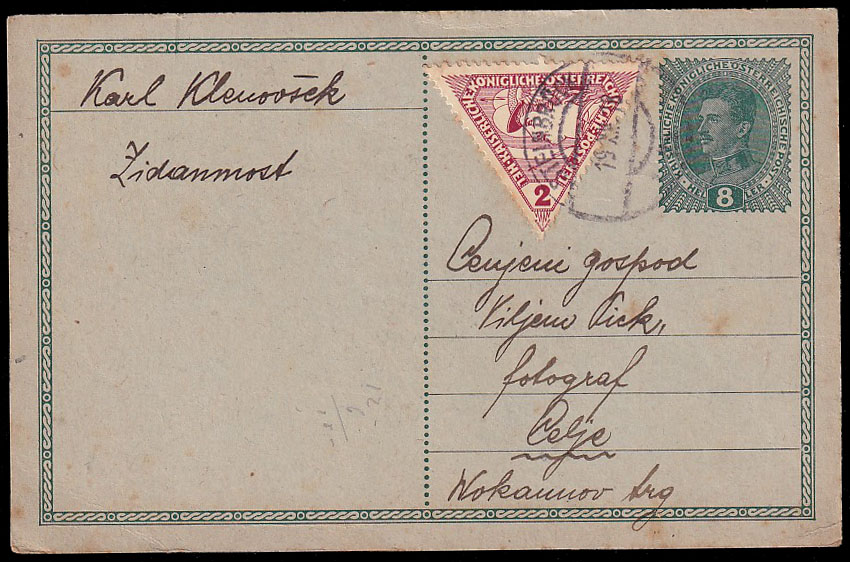 Karl Klenovšek
Zidanmost
KÖNIGLICHE ÖSTERREICHISCHE POST
2
19 XII 18
KAISERLICHE KÖNIGLICHE ÖSTERREICHISCHE POST
8
Cenjeni gospod
Viljem Pick,
fotograf
Celje
Wokaunov trg